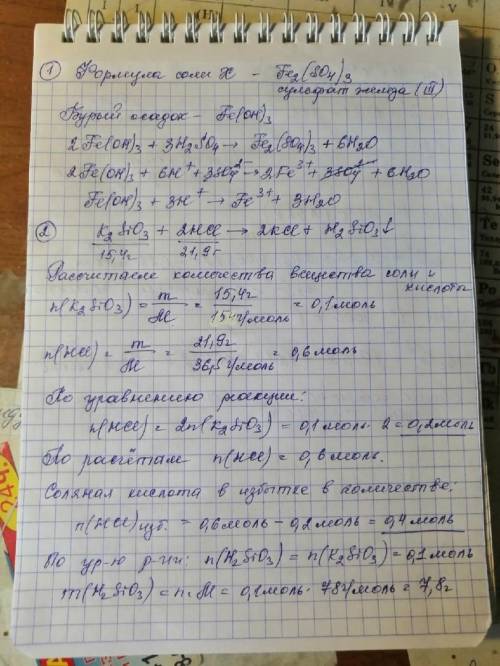 ① Формула соли X – Fe₂(SO₄)₃
сульфат железа (III)
Бурый осадок – Fe(OH)₃
2Fe(OH)₃ + 3H₂SO₄ → Fe₂(SO₄)₃ + 6H₂O
2Fe(OH)₃ + 6H⁺ + 3SO₄²⁻ → 2Fe³⁺ + 3SO₄²⁻ + 6H₂O
Fe(OH)₃ + 3H⁺ → Fe³⁺ + 3H₂O
② K₂SiO₃ + 2HCl → 2KCl + H₂SiO₃↓
15,4г 21,9г
Рассчитаем количества вещества соли и
кислоты
n(K₂SiO₃) = m/M = 15,4г/154г/моль = 0,1моль
n(HCl) = m/M = 21,9г/36,5г/моль = 0,6моль
По уравнению реакции:
n(HCl) = 2n(K₂SiO₃) = 0,1моль · 2 = 0,2моль
По расчётам n(HCl) = 0,6моль.
Соляная кислота в избытке в количестве:
n(HCl)изб. = 0,6моль – 0,2моль = 0,4моль
По ур-ю р-ии: n(H₂SiO₃) = n(K₂SiO₃) = 0,1моль
m(H₂SiO₃) = n·M = 0,1моль · 78г/моль = 7,8г